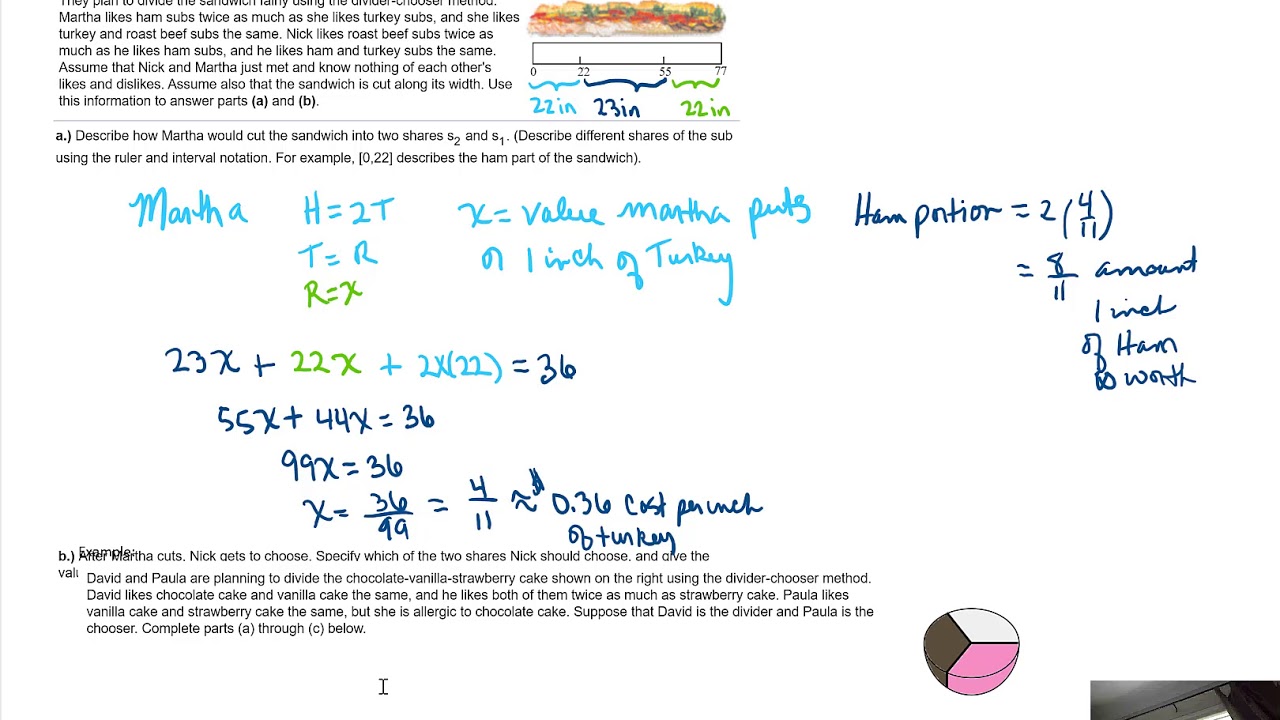 They plan to divide the sandwich fairly using the divider-chooser method.
Martha likes ham subs twice as much as she likes turkey subs, and she likes
turkey and roast beef subs the same. Nick likes roast beef subs twice as
much as he likes ham subs, and he likes ham and turkey subs the same.
Assume that Nick and Martha just met and know nothing of each other's
likes and dislikes. Assume also that the sandwich is cut along its width. Use
this information to answer parts (a) and (b).
0 22 55 77
22in 23in 22in
a.) Describe how Martha would cut the sandwich into two shares s2 and s1. (Describe different shares of the sub
using the ruler and interval notation. For example, [0,22] describes the ham part of the sandwich).
Martha H=2T x= value martha puts
T=R on 1 inch of Turkey
R=x
Ham portion = 2(4/11)
= 8/11 amount
1 inch
of Ham
is worth
23x + 22x + 2x(22) = 36
55x + 44x = 36
99x = 36
x = 36/99 = 4/11 ≈ $0.36 cost per inch
of turkey
b.) After Martha cuts, Nick gets to choose. Specify which of the two shares Nick should choose, and give the
Example:
valu
David and Paula are planning to divide the chocolate-vanilla-strawberry cake shown on the right using the divider-chooser method.
David likes chocolate cake and vanilla cake the same, and he likes both of them twice as much as strawberry cake. Paula likes
vanilla cake and strawberry cake the same, but she is allergic to chocolate cake. Suppose that David is the divider and Paula is the
chooser. Complete parts (a) through (c) below.